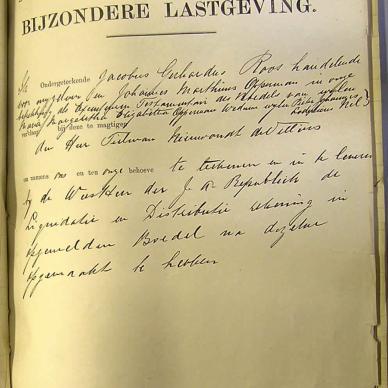 BIJZONDERE LASTGEVING.
Ik Ondergeteekende Jacobus Gerhardus Roos handelende
voor mijzelven en Johannes Marthinus Opperman in onze
als Executeuren Testamentair des Boedels van wijlen
Maria Margaretha Elizabeth Opperman Weduwe wijlen Pieter Johannes
verlaap bij deze te magtigen Lodewicus Nel
den Heer Tielman Nieuwoudt de Villiers
in namens ons en ten onze behoeve te teekenen en in te leveren
bij de WeesHeer der Z A Republiek de
Liquidatie en Distributie rekening in
opgemelden Boedel na dezelve
opgemaakt te hebben